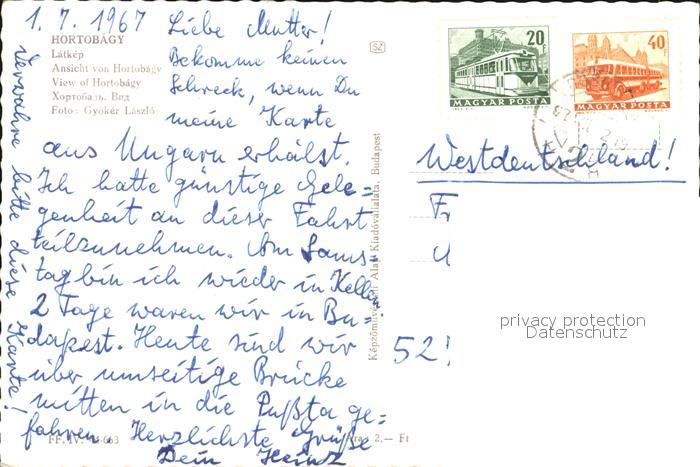 1. 7. 1967
HORTOBÁGY
Látkép
Ansicht von Hortobágy
View of Hortobágy
Хортобадь. Вид
Foto : Gyökér László
Liebe Mutter!
Bekomme keinen
Schreck, wenn Du
meine Karte
aus Ungarn erhälst.
Ich hatte günstige Gele-
genheit an dieser Fahrt
teilzunehmen. Am Sams-
tag bin ich wieder in
2 Tage waren wir in Bu-
dapest. Heute sind wir
über umseitige Brücke
mitten in die Pußta ge-
fahren. Herzlichste Grüße
Dein Heinz
Verwahre bitte diese Karte!
SZ
Képzőművészeti Alap Kiadóvállalata, Budapest
20 f
MAGYAR POSTA
40 f
MAGYAR POSTA
Westdeutschland!
Fr
52!
privacy protection
Datenschutz
2.— Ft